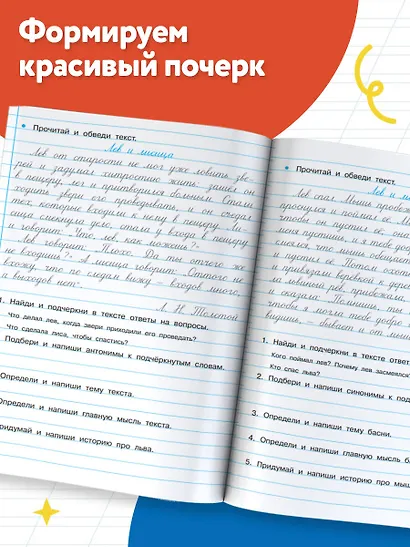 Формируем
красивый почерк
Прочитай и обведи текст.
Лев и лисица
Лев от старости не мог уже ловить зве-
рей и задумал хитростию жить: зашёл он
в пещеру, лёг и притворился больным. Стали
ходить звери его проведывать, и он съедал
тех, которые входили к нему в пещеру. Ли-
сица смекнула дело, стала у входа в пещеру
и говорит: "Что, лев, как можешь?"
Лев говорит: "Плохо. Да ты отчего же
не входишь?" А лисица говорит: "Оттого не
вхожу, что по следам вижу – входов много,
а выходов нет".
Л. Н. Толстой
1. Найди и подчеркни в тексте ответы на вопросы.
Что делал лев, когда звери приходили его проведать?
Что сделала лиса, чтобы спастись?
Подбери и напиши антонимы к подчёркнутым словам.
Определи и напиши тему текста.
Определи и напиши главную мысль текста.
Придумай и напиши историю про льва.
Прочитай и обведи текст.
Лев и м
Лев спал. Мышь пробежа
проснулся и поймал её. Мы
чтобы он пустил её; она
меня пустишь, и я тебе до
смеялся, что мышь обещает
и пустил её. Потом охот
и привязали верёвкой к дерев
львиный рёв, прибежала,
и сказала: "Помнишь, ты
чтобы я могла тебе добро
видишь, – бывает и от мыш
1. Найди и подчеркни в тексте ответ
Кого поймал лев? Почему лев засмеялся
Кто спас льва?
2. Подбери и напиши синонимы к под
3. Определи и напиши тему басни.
4. Определи и напиши главную мысль б
5. Придумай и напиши историю про мыш